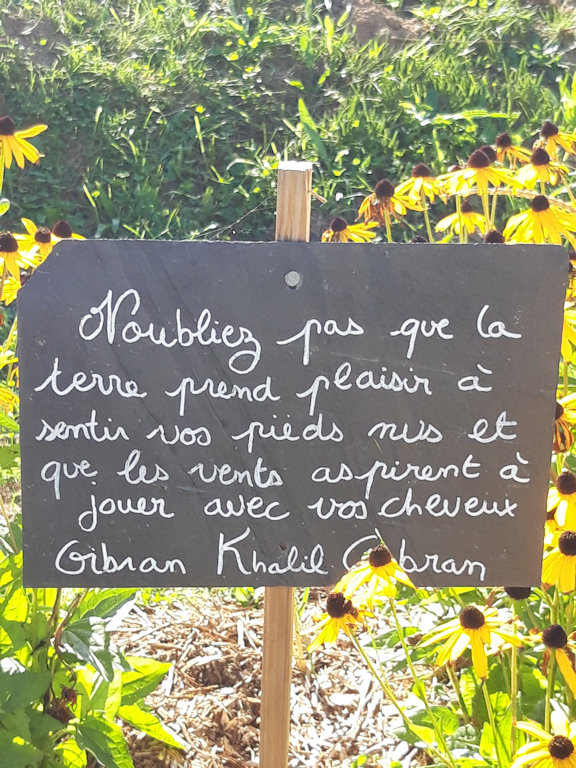 Noubliez pas que la
terre prend plaisir à
sentir vos pieds nus et
que les vents aspirent à
jouer avec vos cheveux
Gibran Khalil Gibran